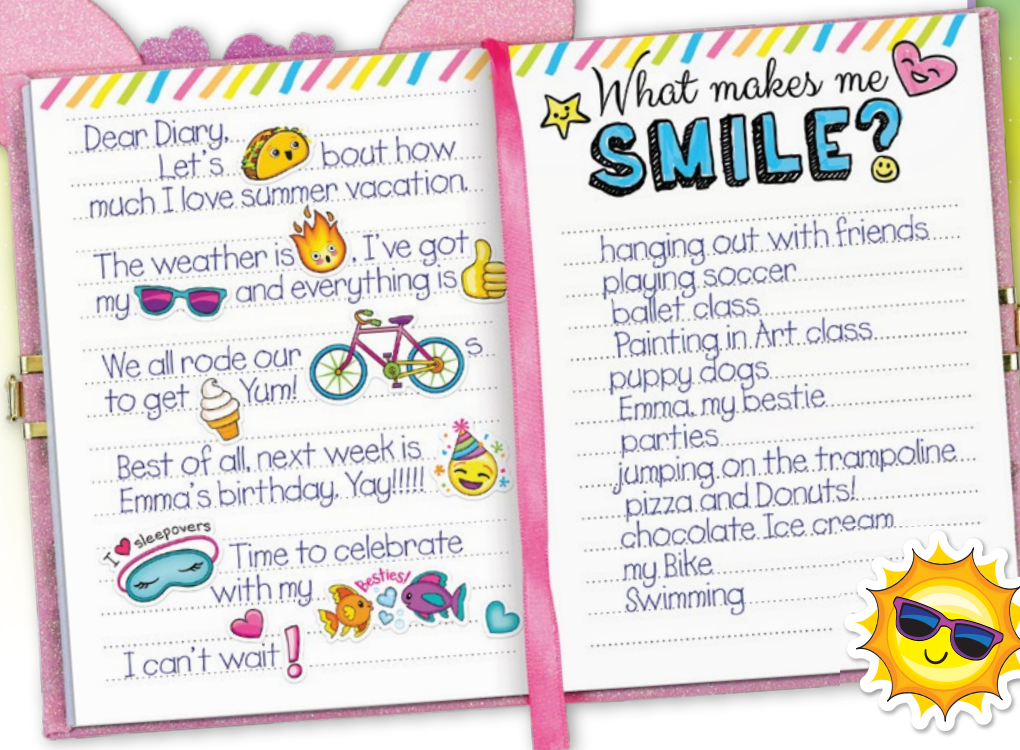 Dear Diary,
Let's bout how
much I love summer vacation.
The weather is , I've got
my and everything is
We all rode our s
to get Yum!
Best of all, next week is
Emma's birthday. Yay!!!!!
I ♥ sleepovers
Time to celebrate
with my
Besties!
I can't wait !
What makes me
SMILE?
hanging out with friends
playing soccer
ballet class
Painting in Art class
puppy dogs
Emma, my bestie
parties
jumping on the trampoline
pizza and Donuts!
chocolate Ice cream
my Bike
Swimming